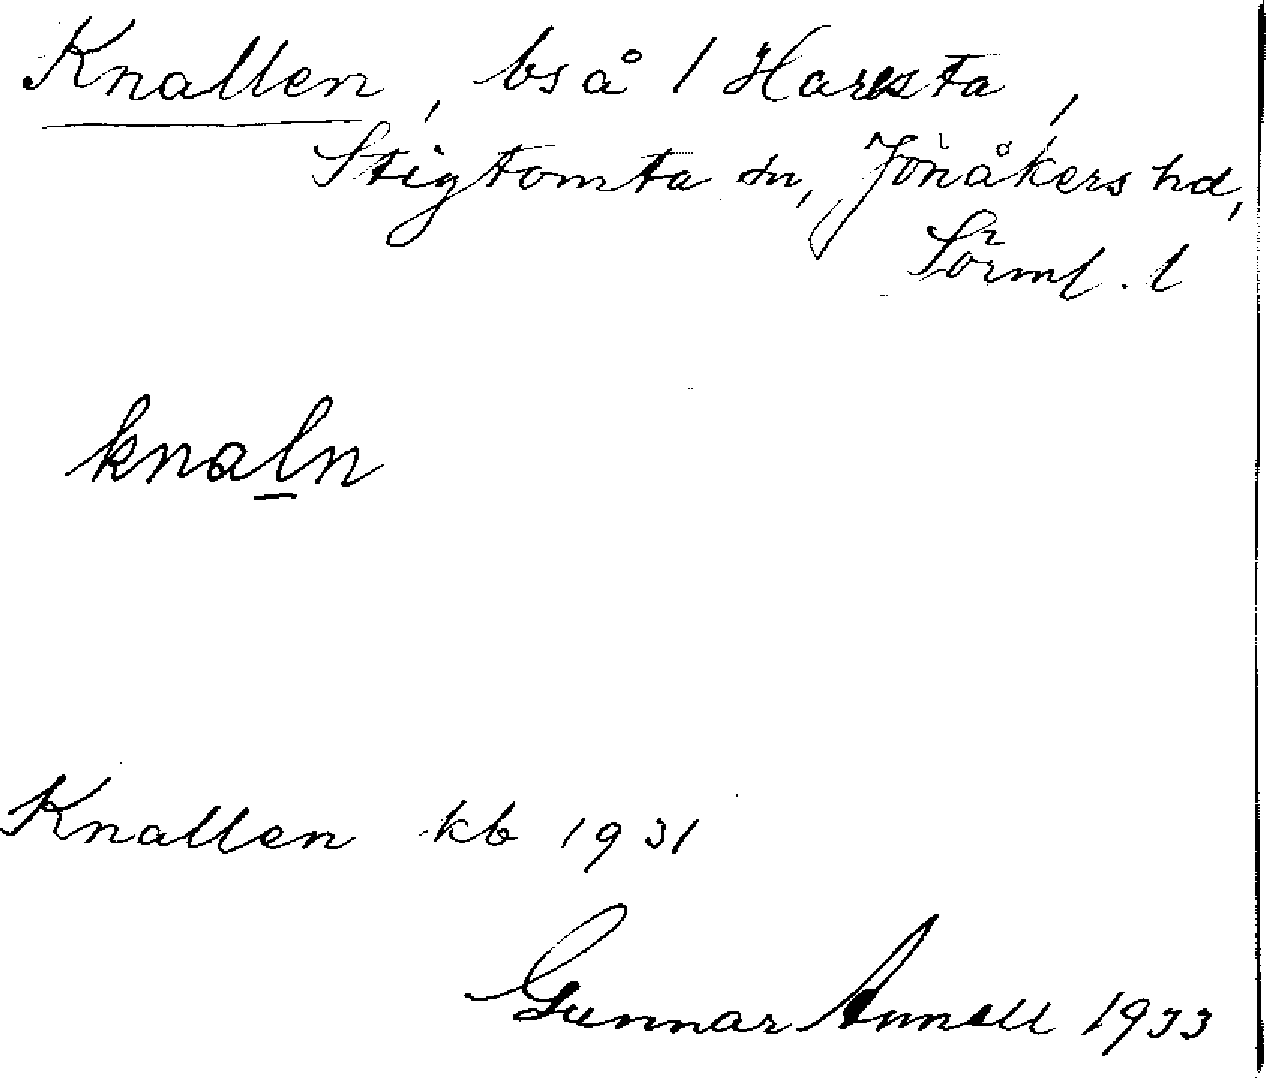 Knallen, bs å 1 Haresta,
Stigtomta sn, Jönåkers hd,
Sörml. l
knaln
Knallen kb 1931
Gunnar Annell 1933